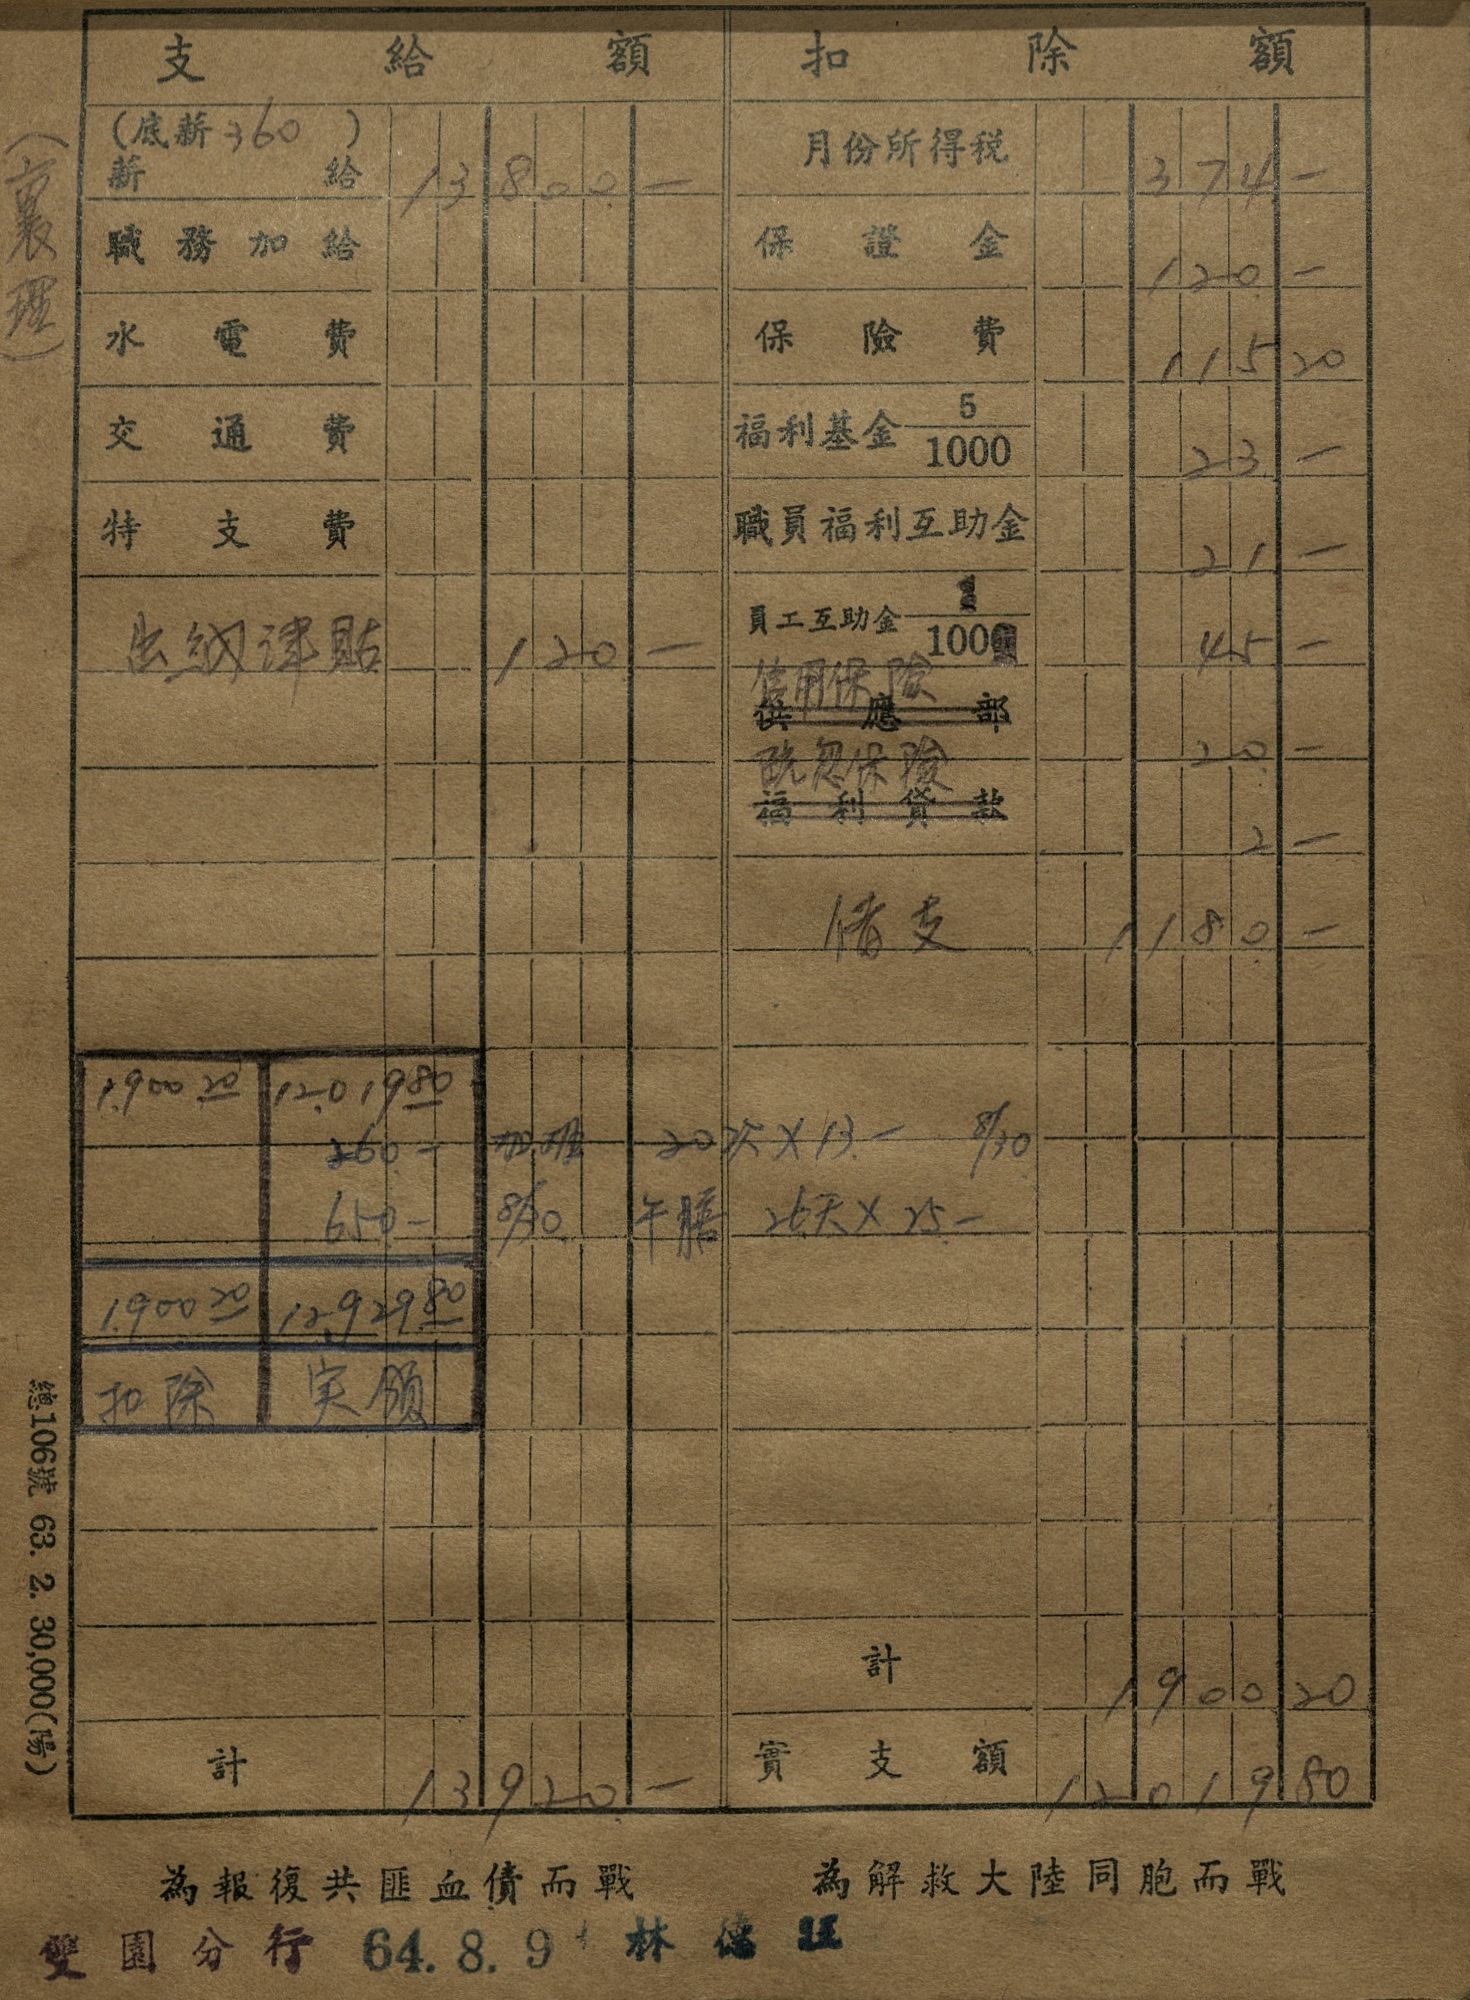 支給額 扣除額
(底薪360)
薪給 13800.—
月份所得稅 374.—
(襄理)
職務加給
保證金 120.—
水電費
保險費 115 20
交通費
福利基金 5/1000 23 —
特支費
職員福利互助金 21 —
出納津貼 120.—
員工互助金 1/100 45 —
信用保險
供應部 20.—
疏忽保險
福利貸款 2 —
借支 1180.—
1,900 20 12,019 80
260.— 加班 20天×13.— 8/30
650.— 8/30 午膳 26天×25.—
1,900 20 12,929 80
扣除 实領
計 1900 20
計 13920.—
實支額 12019 80
總106號 63. 2. 30,000(陽)
為報復共匪血債而戰 為解救大陸同胞而戰
雙園分行 64. 8. 9 林德旺